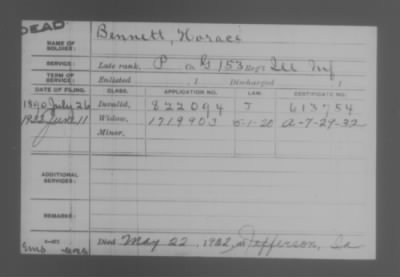 DEAD
NAME OF SOLDIER: Bennett, Horace
SERVICE: Late rank, P Co. G 153 Reg't Ill Inf
TERM OF SERVICE: Enlisted , 1 Discharged 1
DATE OF FILING. CLASS. APPLICATION NO. LAW. CERTIFICATE NO.
1890 July 26 Invalid, 822094 J 613754
June 11 Widow, 1719903 5-1-20 A-7-29-32
Minor,
ADDITIONAL SERVICES:
REMARKS:
Died May 22, 1922, at Jefferson, Ia